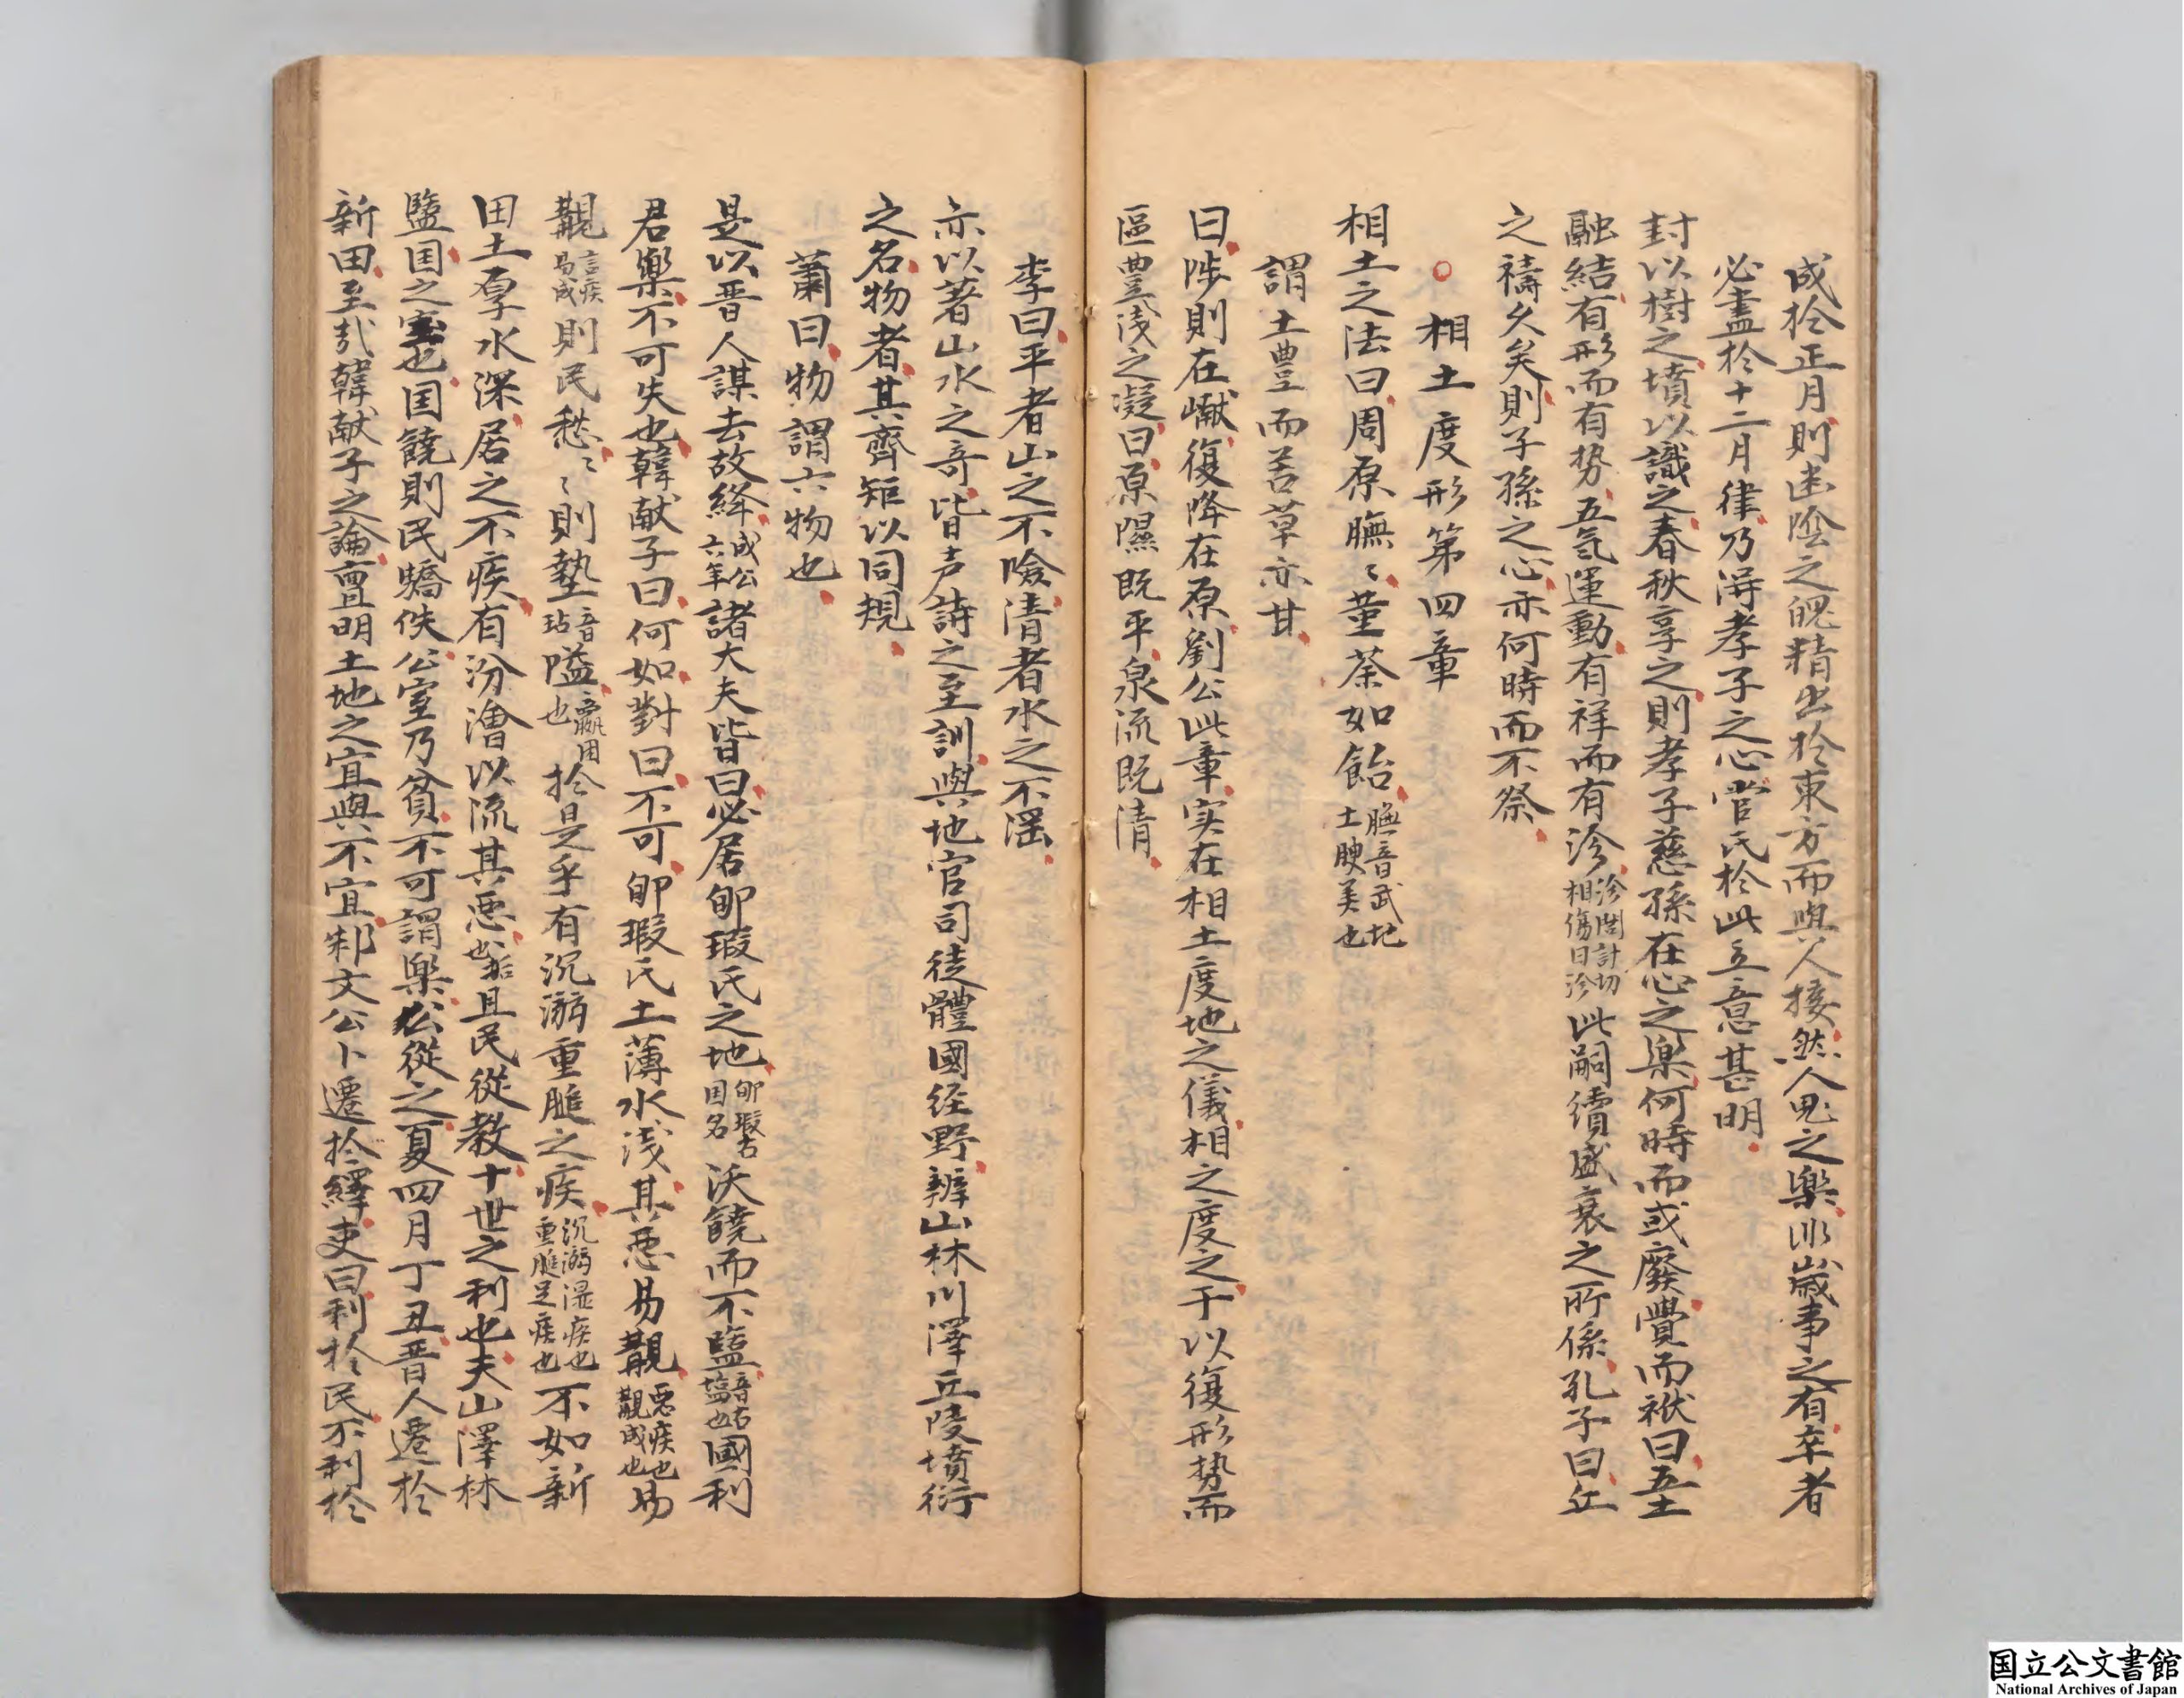 成於正月則幽陰之魄精出於東方而與人接然人鬼之樂非歲事之有卒者
必盡於十二月律乃得孝子之心管氏於此立意甚明
封以樹之墳以識之春秋享之則孝子慈孫在心之樂何時而或廢黌而祔曰五土
融結有形而有势五氣運動有祥而有沴沴閭計切相傷曰沴此嗣續盛衰之所係孔子曰丘
之禱久矣則子孫之心亦何時而不祭
○相土度形第四章
相土之法曰周原膴〻菫荼如飴膴音武地土腴美也
謂土豊而苦草亦甘
曰陟則在巘復降在原劉公此章实在相土度地之儀相之度之于以復形势而
區豊浅之凝曰原隰既平泉流既清
李曰平者山之不險清者水之不滛
亦以著山水之奇皆声詩之至訓與地官司徒體國経野辨山林川澤丘陵墳衍
之名物者其齊矩以同規
蕭曰物謂六物也
是以晋人謀去故絳成公六年諸大夫皆曰必居郇瑕氏之地郇瑕古国名沃饒而不盬音古塩也國利
君樂不可失也韓献子曰何如對曰不可郇瑕氏土薄水浅其悪易覯悪疾也覯成也易
覯言疾易成則民愁〻則墊音玷隘羸困也於是乎有沉溺重膇之疾沉溺湿疾也重膇足疾也不如新
田土厚水深居之不疾有汾澮以流其悪垢也且民從教十世之利也夫山澤林
盬国之宝也国饒則民驕佚公室乃貧不可謂樂公從之夏四月丁丑晋人遷於
新田至哉韓献子之論亶明土地之宜與不宜邾文公卜遷於繹吏曰利於民不利於
国立公文書館
National Archives of Japan